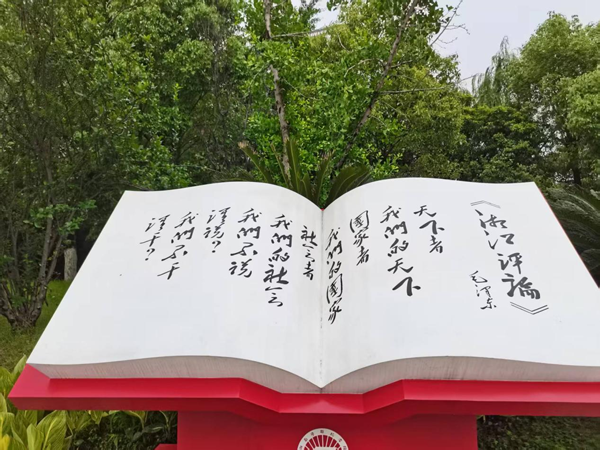 《湘江评論》
毛泽东
天下者
我們的天下
國家者
我們的國家
社会者
我們的社会
我們不说
谁说？
我們不干
谁干？